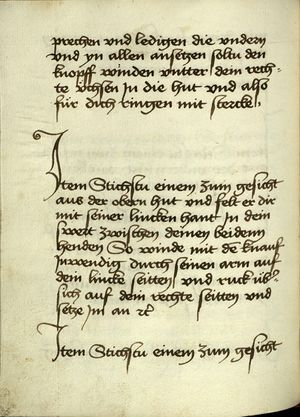 prechen vnd ledigen die vndern
vnd yn allen ansetzen soltu den
knopff winden vntter dem rech¬
te vchsen In die hut vnd also
für dich ringen mit stercke
Item Stichstu einem zum gesicht
aus der obern hut vnd felt er dir
mit seiner lincken hant In dein
swert zwischen deinen beidenn
henden So winde mit dē knauf
Inwendig durch seinen arm auf
dein lincke seitten vnd ruck üb⸗
sich auf dein rechte seitten vnd
setze Im an ꝛc
Item Stichstu einem zum gesicht